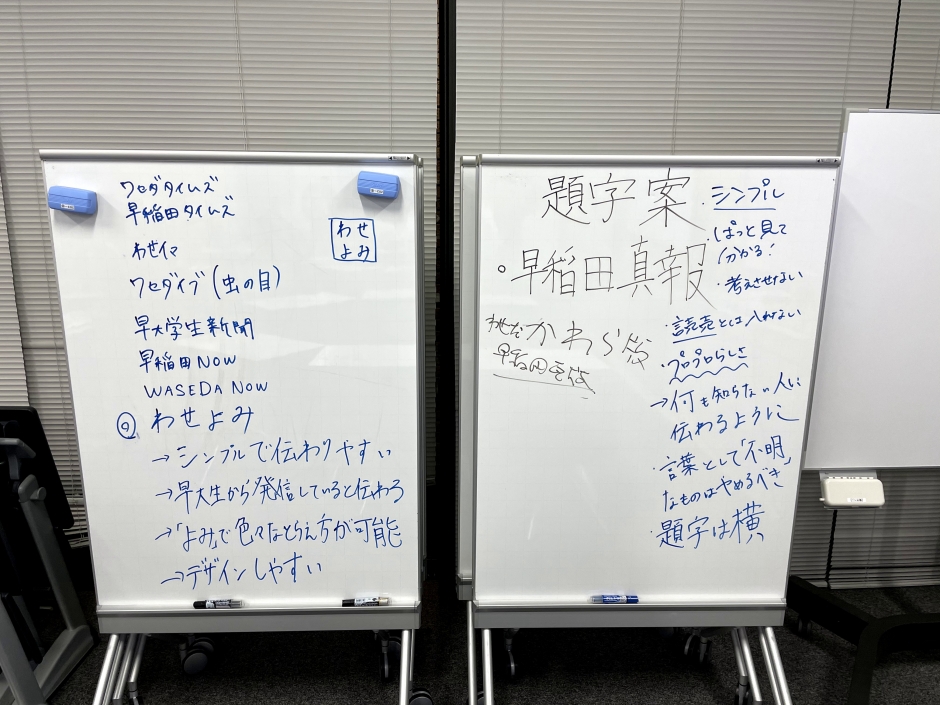 ワセダタイムズ
早稲田タイムズ
わせイマ
ワセダイブ(虫の目)
早大学生新聞
早稲田NOW
WASEDA NOW
わせよみ
→シンプルで伝わりやすい
→早大生から発信していると伝わる
→「よみ」で色々なとらえ方が可能
→デザインしやすい
わせ
よみ
題字案
。早稲田真報
わせだかわら版
早稲田
・シンプル
・ぱっと見て
分かる!
・考えさせない
・読売とは入れない
・プロプロらしさ
→何も知らない人に
伝わるように
・言葉として「不明」
なものはやめるべき
・題字は横